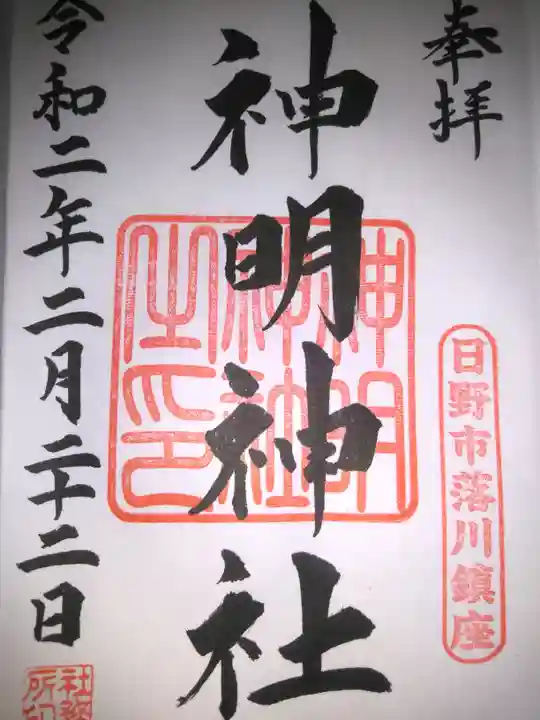 奉拝
日野市落川鎮座
神明神社
神明
神社
之印
令和二年二月二十二日
社務
所印